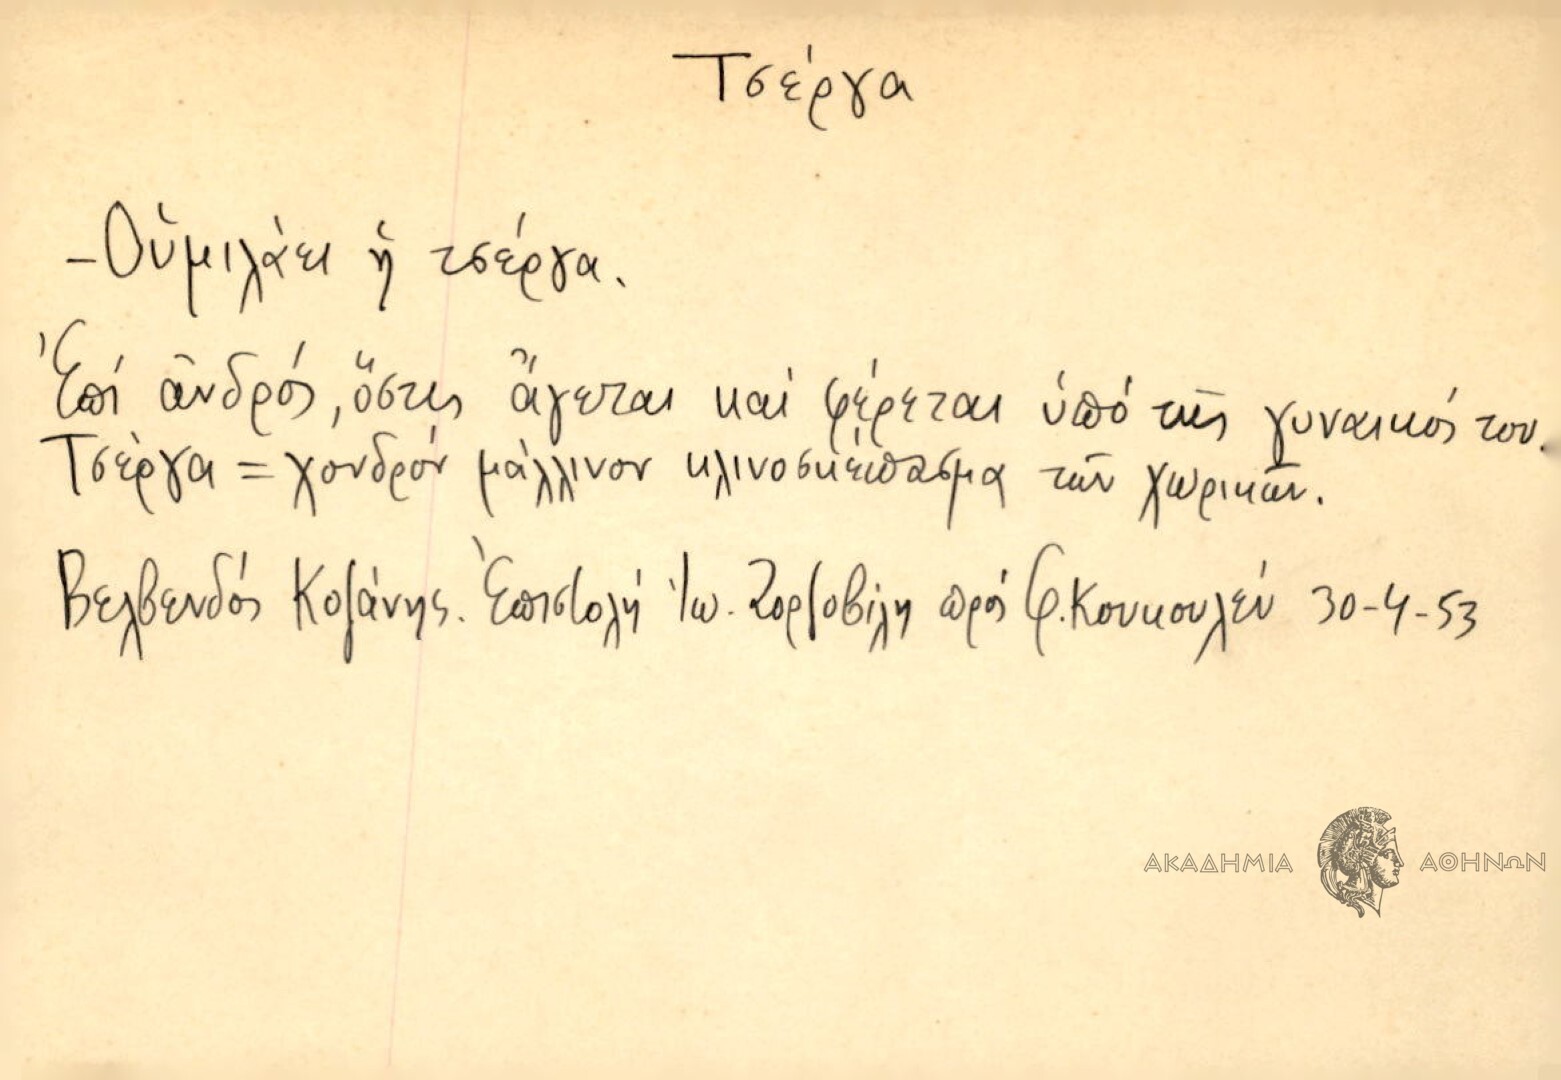 Τσέργα
- Οὐμιλάει ἡ τσέργα.
Ἐπί ἀνδρός, ὅστις ἄγεται καί φέρεται ὑπό τῆς γυναικός του.
Τσέργα = χονδρόν μάλλινον κλινοσκέπασμα τῶν χωρικῶν.
Βελβενδός Κοζάνης. Ἐπιστολή Ἰω. Ζορζοβίλη πρός Φ. Κουκουλέν 30-4-53
ΑΚΑΔΗΜΙΑ ΑΘΗΝΩΝ